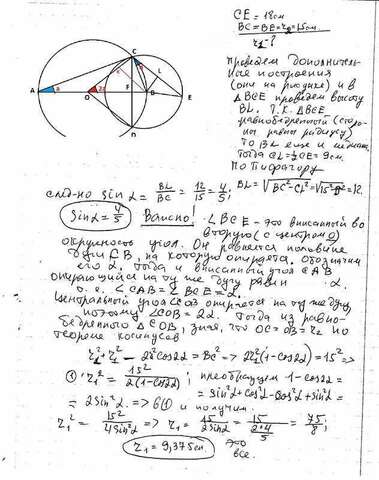 CE = 18см
BC = BE = r₂ = 15см.
r₁ - ?
A
α
O
2α
C
F
L
B
E
D
проведем дополнитель-
ные построения
(они на рисунке) и в
△BCE проведем высоту
BL. Т.К. △BCE
равнобедренный (сторо-
ны равны радиусу)
то BL еще и медиана.
тогда CL = ½CE = 9см.
по Пифагору
BL = √BC² - CL² = √15² - 9² = 12.
след-но sin α = BL/BC = 12/15 = 4/5;
sin α = 4/5
Важно! ∠BCE - это вписанный во
вторую (с центром O)
окружность угол. Он равняется половине
дуги CB, на которую опирается. Обозначим
его α, тогда и вписанный угол CAB
опирающийся на ту же дугу равен α.
т.е. ∠CAB = ∠BCE = α.
Центральный угол COB опирается на ту же дугу
поэтому ∠COB = 2α. Тогда из равно-
бедренного △COB, зная, что OC = OB = r₁ по
теореме косинусов
r₁² + r₁² - 2r₁² cos2α = BC² => 2r₁²(1 - cos2α) = 15² =>
① r₁² = 15²/2(1 - cos2α); преобразуем 1 - cos2α =
= sin²α + cos²α - cos²α + sin²α =
= 2sin²α. => в (1) и получим:
r₁² = 15²/4sin²α => r₁ = 15/2sinα = 15/(2·4/5) = 75/8;
r₁ = 9,375см.
это
все.